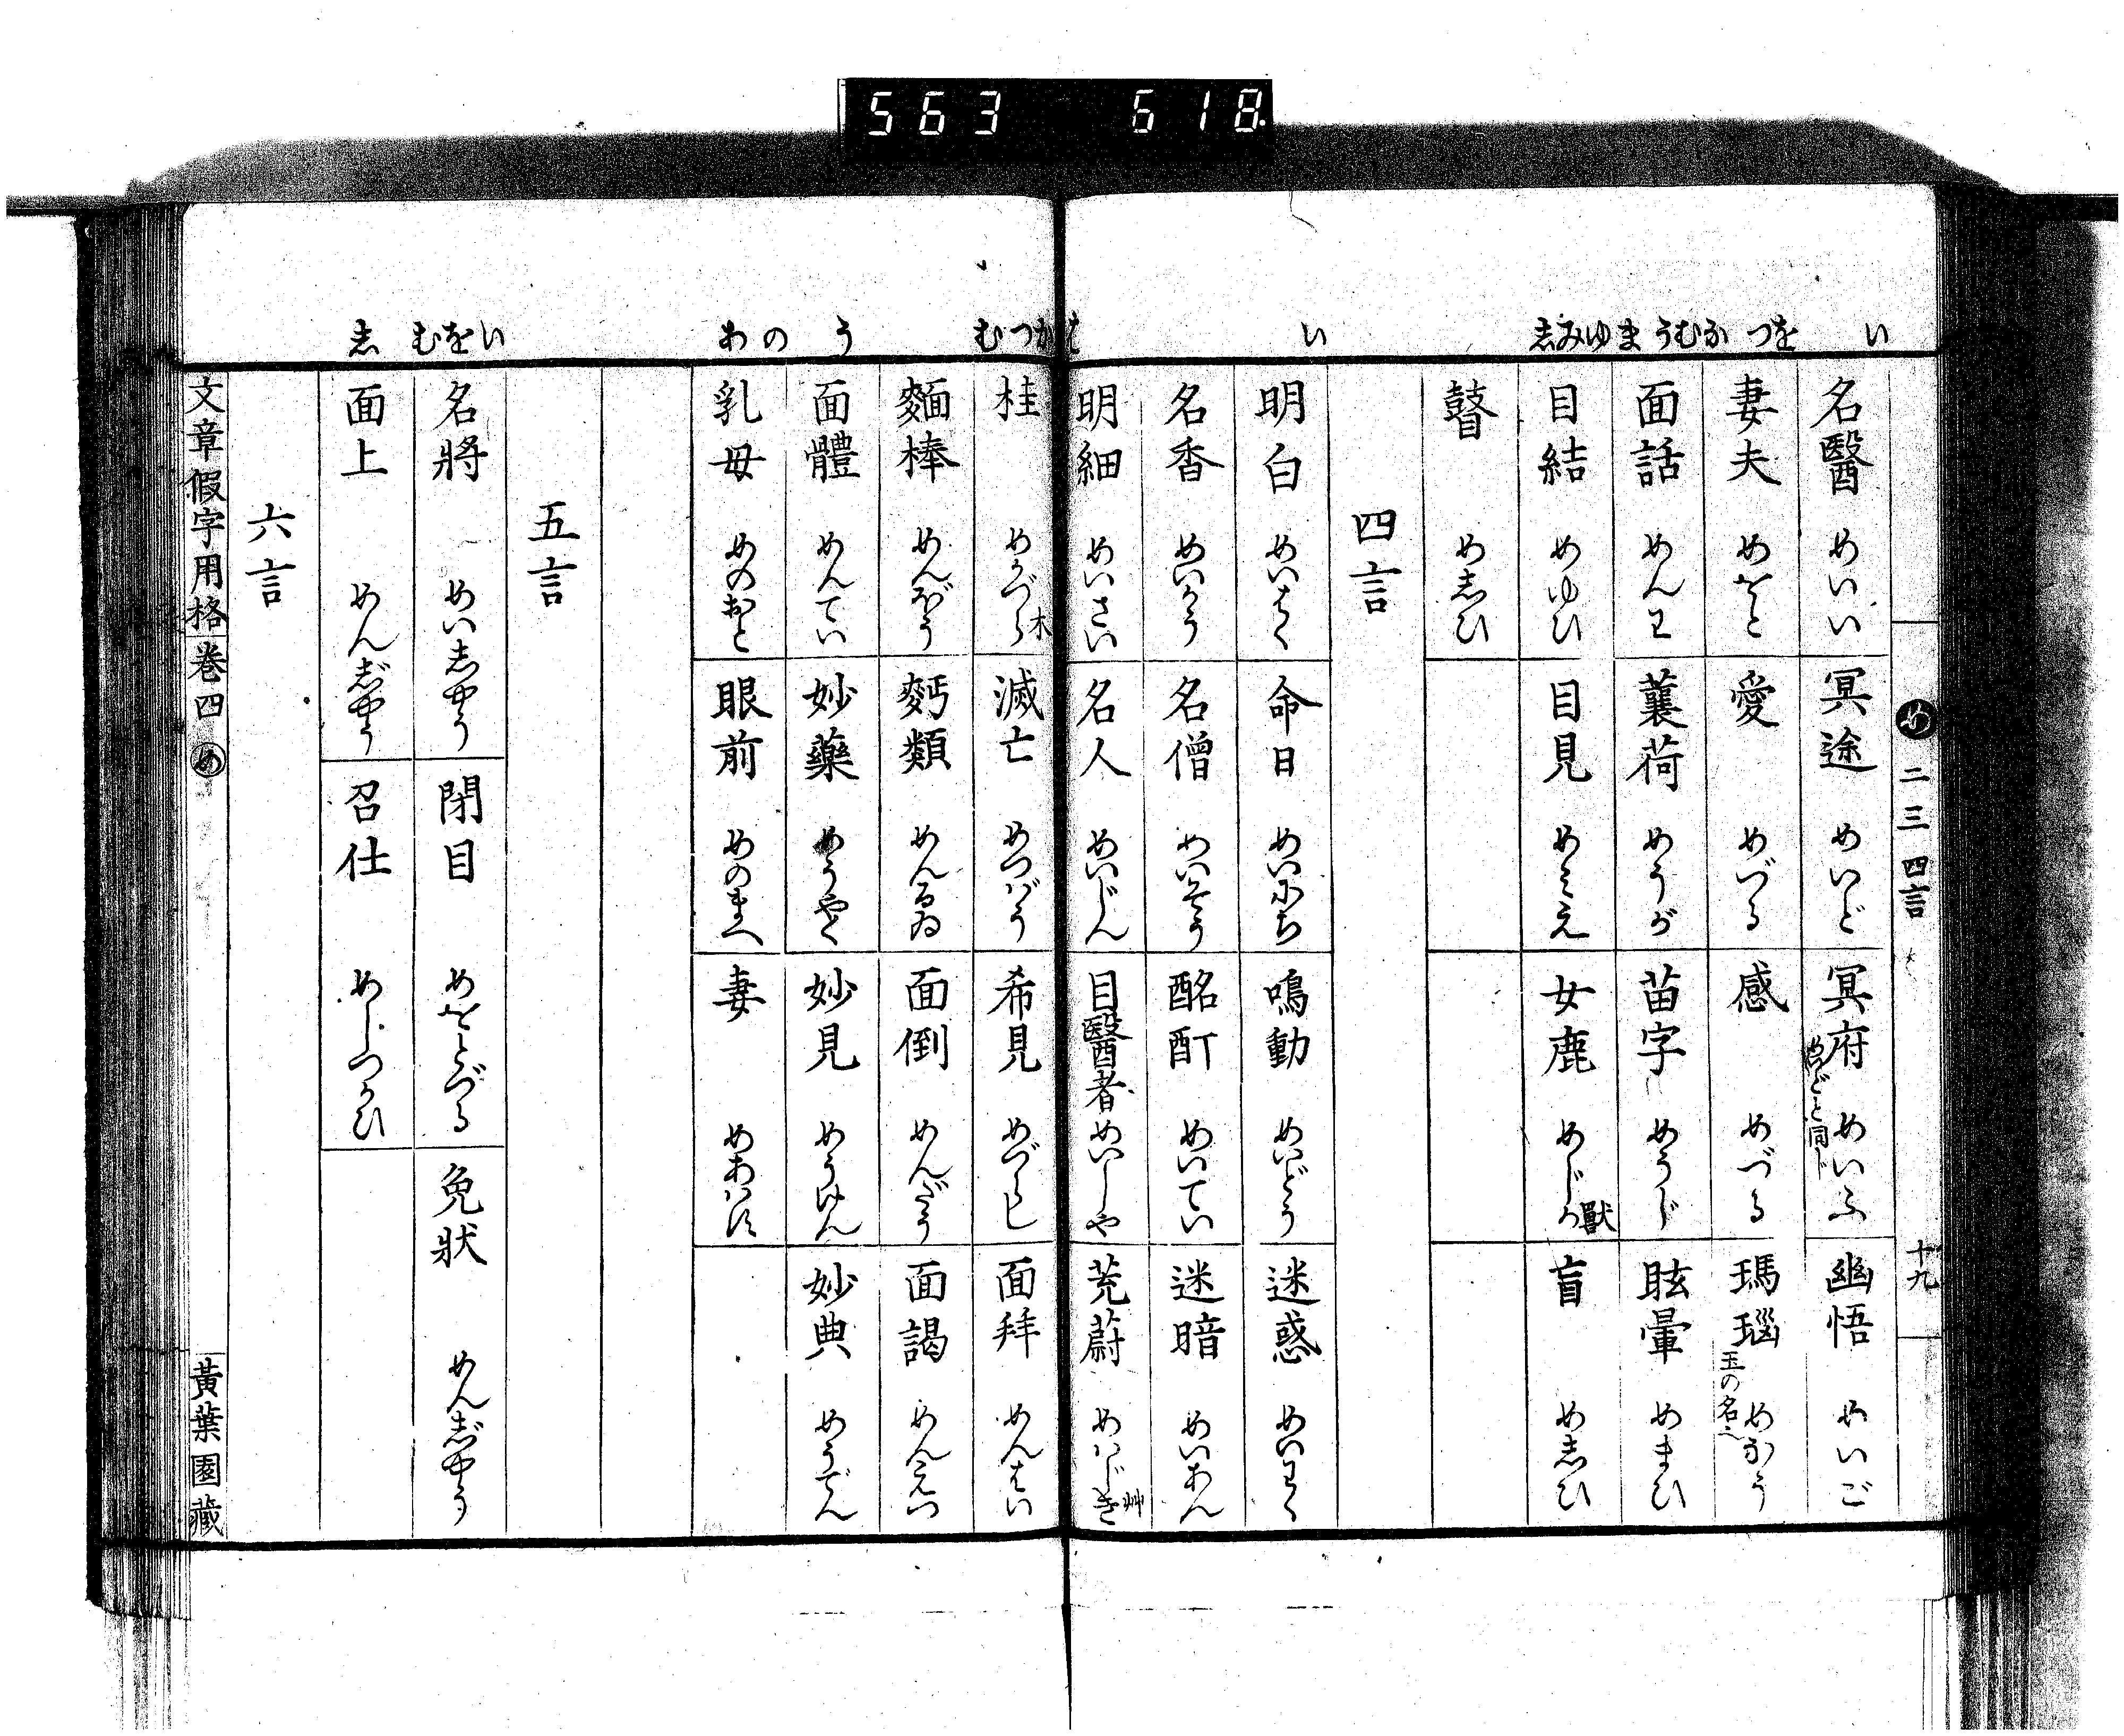 563 618
い
をつ
なむうまゆみ志
い
は
かつむ
う
のあ
いをむ
志
め 二三四言 十九
名醫 めいい 冥途 めいど 冥府 めいふ めいどと同じ 幽悟 めいご
妻夫 めをと 愛 めづる 感 めづる 瑪瑙 めなう 玉の名へ
面話 めんわ 蘘荷 めうが 苗字 めうじ 眩暈 めまひ
目結 めゆひ 目見 めみえ 女鹿 めじか 獸 盲 め志ひ
瞽 め志ひ
四言
明白 めいはく 命日 めいにち 鳴動 めいどう 迷惑 めいわく
名香 めいかう 名僧 めいそう 酩酊 めいてい 迷暗 めいあん
明細 めいさい 名人 めいじん 目醫者 めいしや 茺蔚 めはじき 艸
桂 めかづら 木 滅亡 めつばう 希見 めづらし 面拜 めんはい
麵棒 めんぼう 麪類 めんるゐ 面倒 めんだう 面謁 めんえつ
面體 めんてい 妙藥 めうやく 妙見 めうけん 妙典 めうでん
乳母 めのおと 眼前 めのまへ 妻 めあはす
五言
名將 めい志やう 閉目 めをとづる 免狀 めん志゛やう
面上 めん志゛やう 召仕 めしつかひ
六言
文章假字用格卷四 め 黃葉園藏